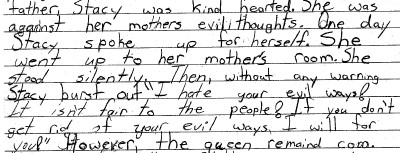 father, Stacy was kind hearted. She was
against her mothers evil thoughts. One day
Stacy spoke up for herself. She
went up to her mother's room. She
stood silently. Then, without any warning
Stacy burst out "I hate your evil ways!
It isn't fair to the people! If you don't
get rid of your evil ways, I will for
you!" However, the queen remaind cam.